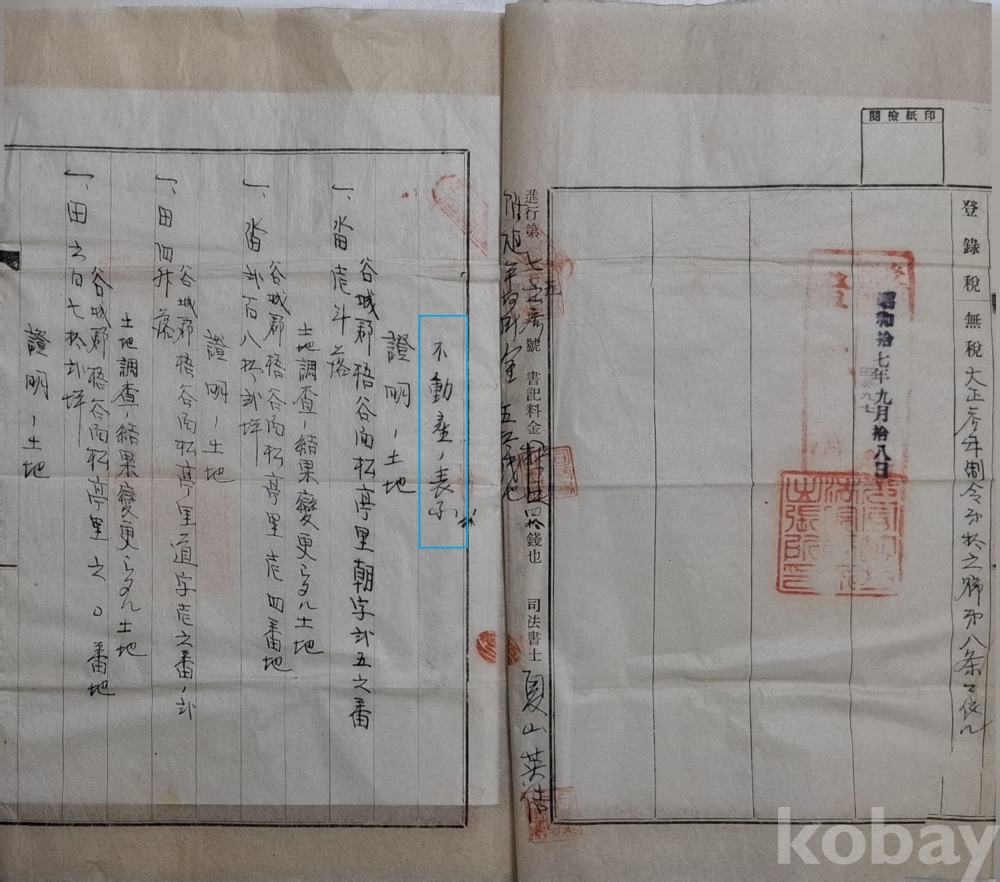 印紙檢閱
登錄稅 無稅 大正參年制令第拾之號第八条ニ依ル
昭和拾七年九月拾八日
出張所
進行第 號 書記料金 四拾錢也 司法書士 夏山英
不動産ノ表示
證明ノ土地
谷城郡梧谷面松亭里朝字弐五之番
一、畓壱斗落
土地調査ノ結果變更シタル土地
谷城郡梧谷面松亭里壱四番地
一、畓弐百八拾弐坪
證明ノ土地
谷城郡梧谷面松亭里道字壱之番ノ弐
一、田四升落
土地調査ノ結果變更シタル土地
谷城郡梧谷面松亭里之〇番地
一、田之百七拾弐坪
證明ノ土地
kobay